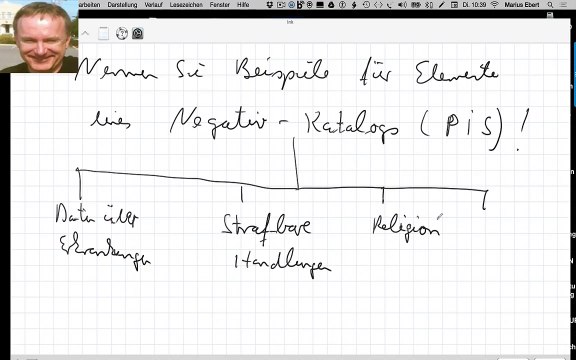 arbeiten Darstellung Verlauf Lesezeichen Fenster Hilfe Di. 10:39 Marius Ebert
Ink
Nennen Sie Beispiele für Elemente
eines Negativ-Katalogs (PiS)!
Daten über
Erkrankungen
Strafbare
Handlungen
Religion